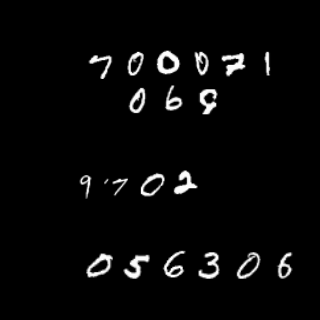 700071
069
9702
056306